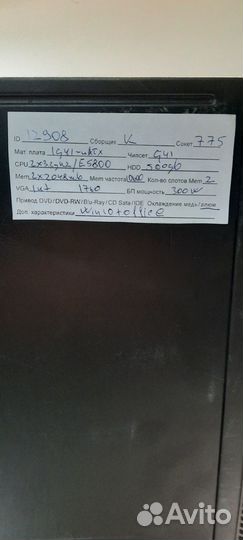 ID 12908 Сборщик V Сокет 775
Мат. плата IG41-mATX Чипсет G41
CPU 2x3,2ghz/E5800 HDD 500gb
Mem 2x2048mb Mem частота Кол-во слотов Mem 2
VGA Int БП мощность 300W
Привод DVD/DVD-RW/Blu-Ray/CD Sata/IDE Охлаждение медь/алюм
Доп. характеристики Win10+office
Avito